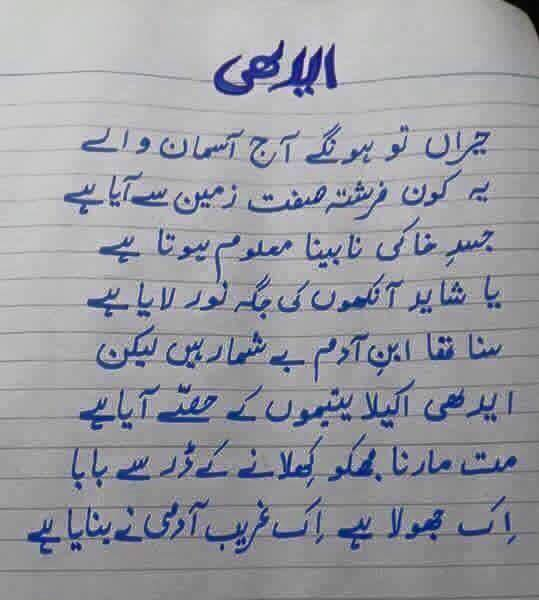 ایدھی
حیراں تو ہونگے آج آسمان والے
یہ کون فرشتہ صفت زمین سے آیا ہے
جسدِ خاکی نابینا معلوم ہوتا ہے
یا شاید آنکھوں کی جگہ نور لایا ہے
سنا تھا ابنِ آدم بے شمار ہیں لیکن
ایدھی اکیلا یتیموں کے حصّے آیا ہے
مت مارنا مجھکو کِھلانے کے ڈر سے بابا
اِک جھولا ہے اِک غریب آدمی نے بنایا ہے